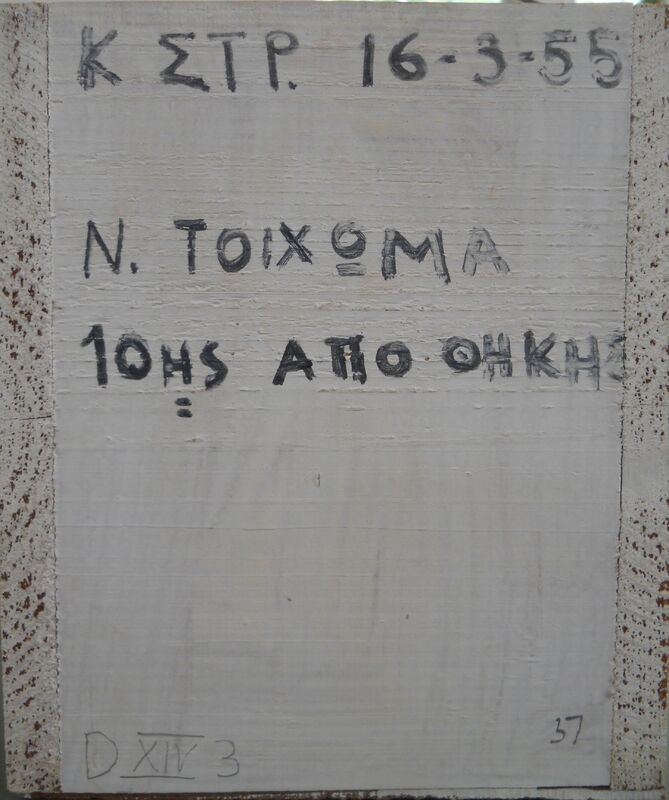 Κ ΣΤΡ. 16-3-55
Ν. ΤΟΙΧΩΜΑ
10ΗΣ ΑΠΟΘΗΚΗΣ
37
D XIV 3